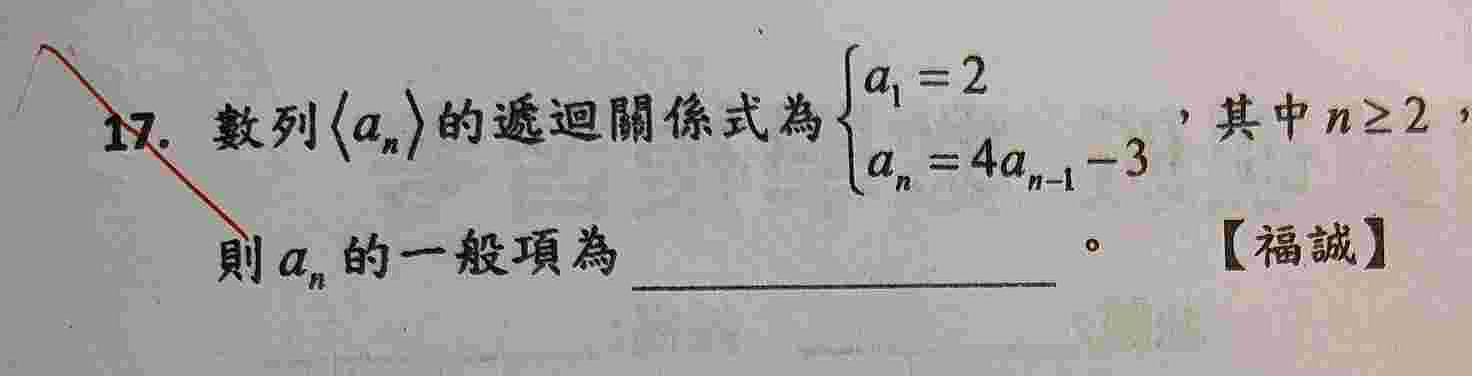 17. 數列⟨aₙ⟩的遞迴關係式為{a₁ = 2, aₙ = 4aₙ₋₁ − 3 ,其中 n ≥ 2,
則 aₙ 的一般項為 ＿＿＿＿＿＿ 。 【福誠】